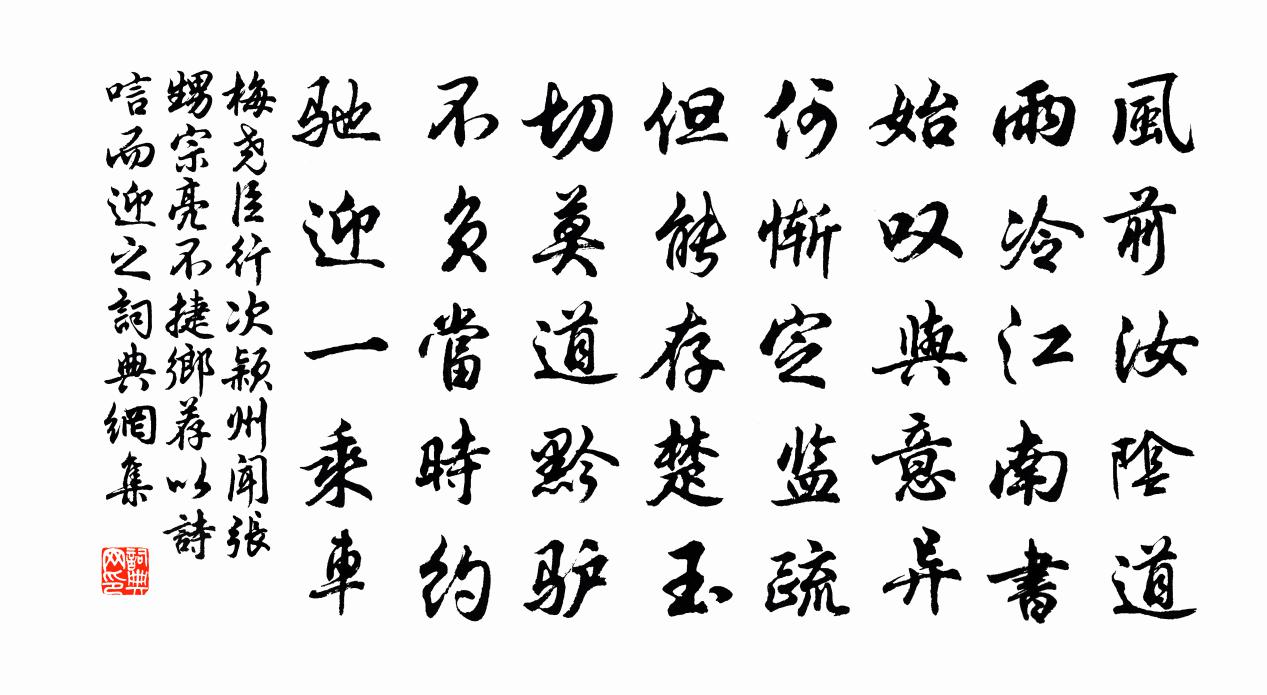 風前汝陰道
雨冷江南書
始叹與意异
何慚定监疏
但能存楚玉
切莫道黔驴
不负當時約
驰迎一乘車
梅尧臣行次颖州闻張
甥宗亮不捷鄉荐以詩
唁而迎之詞典網集
詞典网印